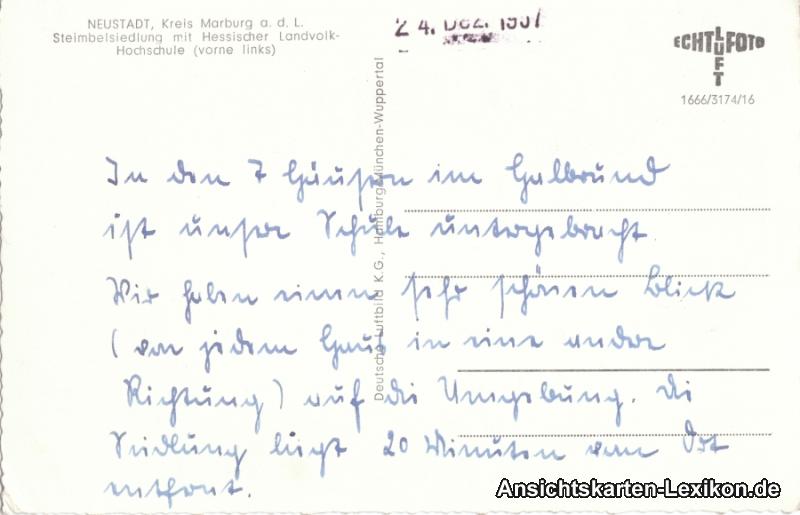 NEUSTADT, Kreis Marburg a. d. L.
Steimbelsiedlung mit Hessischer Landvolk-
Hochschule (vorne links)
24. DEZ. 1957
ECHT LUFT FOTO
1666/3174/16
Deutsche Luftbild K.G., Hamburg-München-Wuppertal
In den 7 Häusern im Halbrund
ist unsere Schule untergebracht.
Wir haben einen sehr schönen Blick
(von jedem Haus in eine andere
Richtung) auf die Umgebung. Die
Siedlung liegt 20 Minuten vom Ort
entfernt.
Ansichtskarten-Lexikon.de